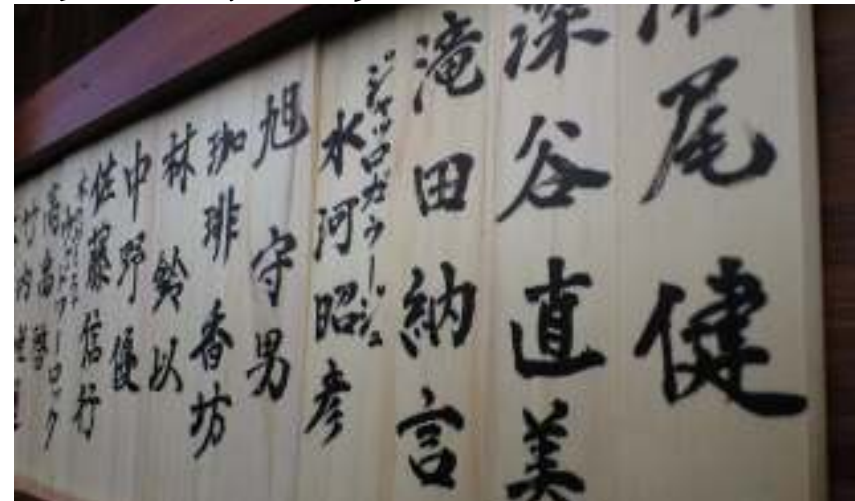 尾健
深谷直美
滝田納言
ジャッロガラージュ
水河昭彦
旭守男
珈琲香坊
林鈴以
中野優
佐藤信行
竹内